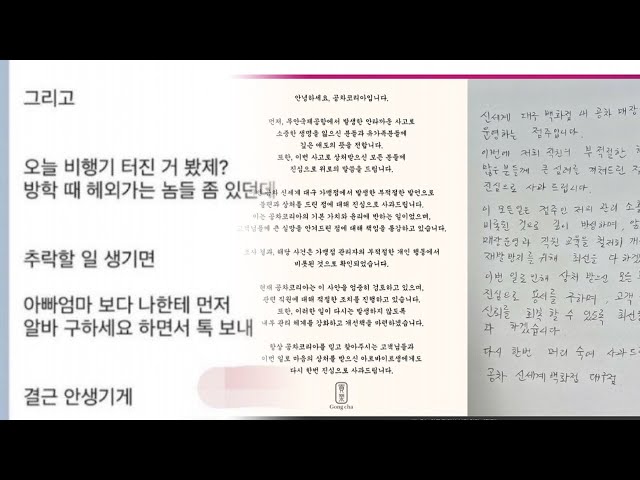 그리고
오늘 비행기 터진 거 봤제?
방학 때 헤외가는 놈들 좀 있던데
추락할 일 생기면
아빠엄마 보다 나한테 먼저
알바 구하세요 하면서 톡 보내
결근 안생기게
안녕하세요, 공차코리아입니다.
먼저, 무안국제공항에서 발생한 안타까운 사고로
소중한 생명을 잃으신 분들과 유가족분들께
깊은 애도의 뜻을 전합니다.
또한, 이번 사고로 상처받으신 모든 분들께
진심으로 위로의 말씀을 드립니다.
공차 신세계 대구 가맹점에서 발생한 부적절한 발언으로
불편과 상처를 드린 점에 대해 진심으로 사과드립니다.
이는 공차코리아의 기본 가치와 윤리에 반하는 일이었으며,
고객님들께 큰 실망을 안겨드린 점에 대해 책임을 통감하고 있습니다.
조사 결과, 해당 사건은 가맹점 관리자의 부적절한 개인 행동에서
비롯된 것으로 확인되었습니다.
현재 공차코리아는 이 사안을 엄중히 검토하고 있으며,
관련 직원에 대해 적절한 조치를 진행하고 있습니다.
또한, 이러한 일이 다시는 발생하지 않도록
내부 관리 체계를 강화하고 개선책을 마련하겠습니다.
항상 공차코리아를 믿고 찾아주시는 고객님들과
이번 일로 마음의 상처를 받으신 아르바이트생에게도
다시 한번 진심으로 사과드립니다.
貢茶
Gong cha
신세계 대구 백화점 내 공차 매장
운영하는 점주입니다.
이번에 저희 부적절한
많은 분들께 큰 심려를 끼쳐드린 점
진심으로 사과 드립니다.
이 모든일은 점주인 저의 관리 소홀
비롯된 것으로 깊이 반성하며,
매장운영과 직원 교육을 철저히
재발 방지를 위해 최선을 다 하겠
이번 일로 인해 상처 받으신 모든
진심으로 용서를 구하며, 고객
신뢰를 회복 할 수 있도록 최선을
하겠습니다
다시 한번 머리 숙여 사과드
공차 신세계백화점 대구점